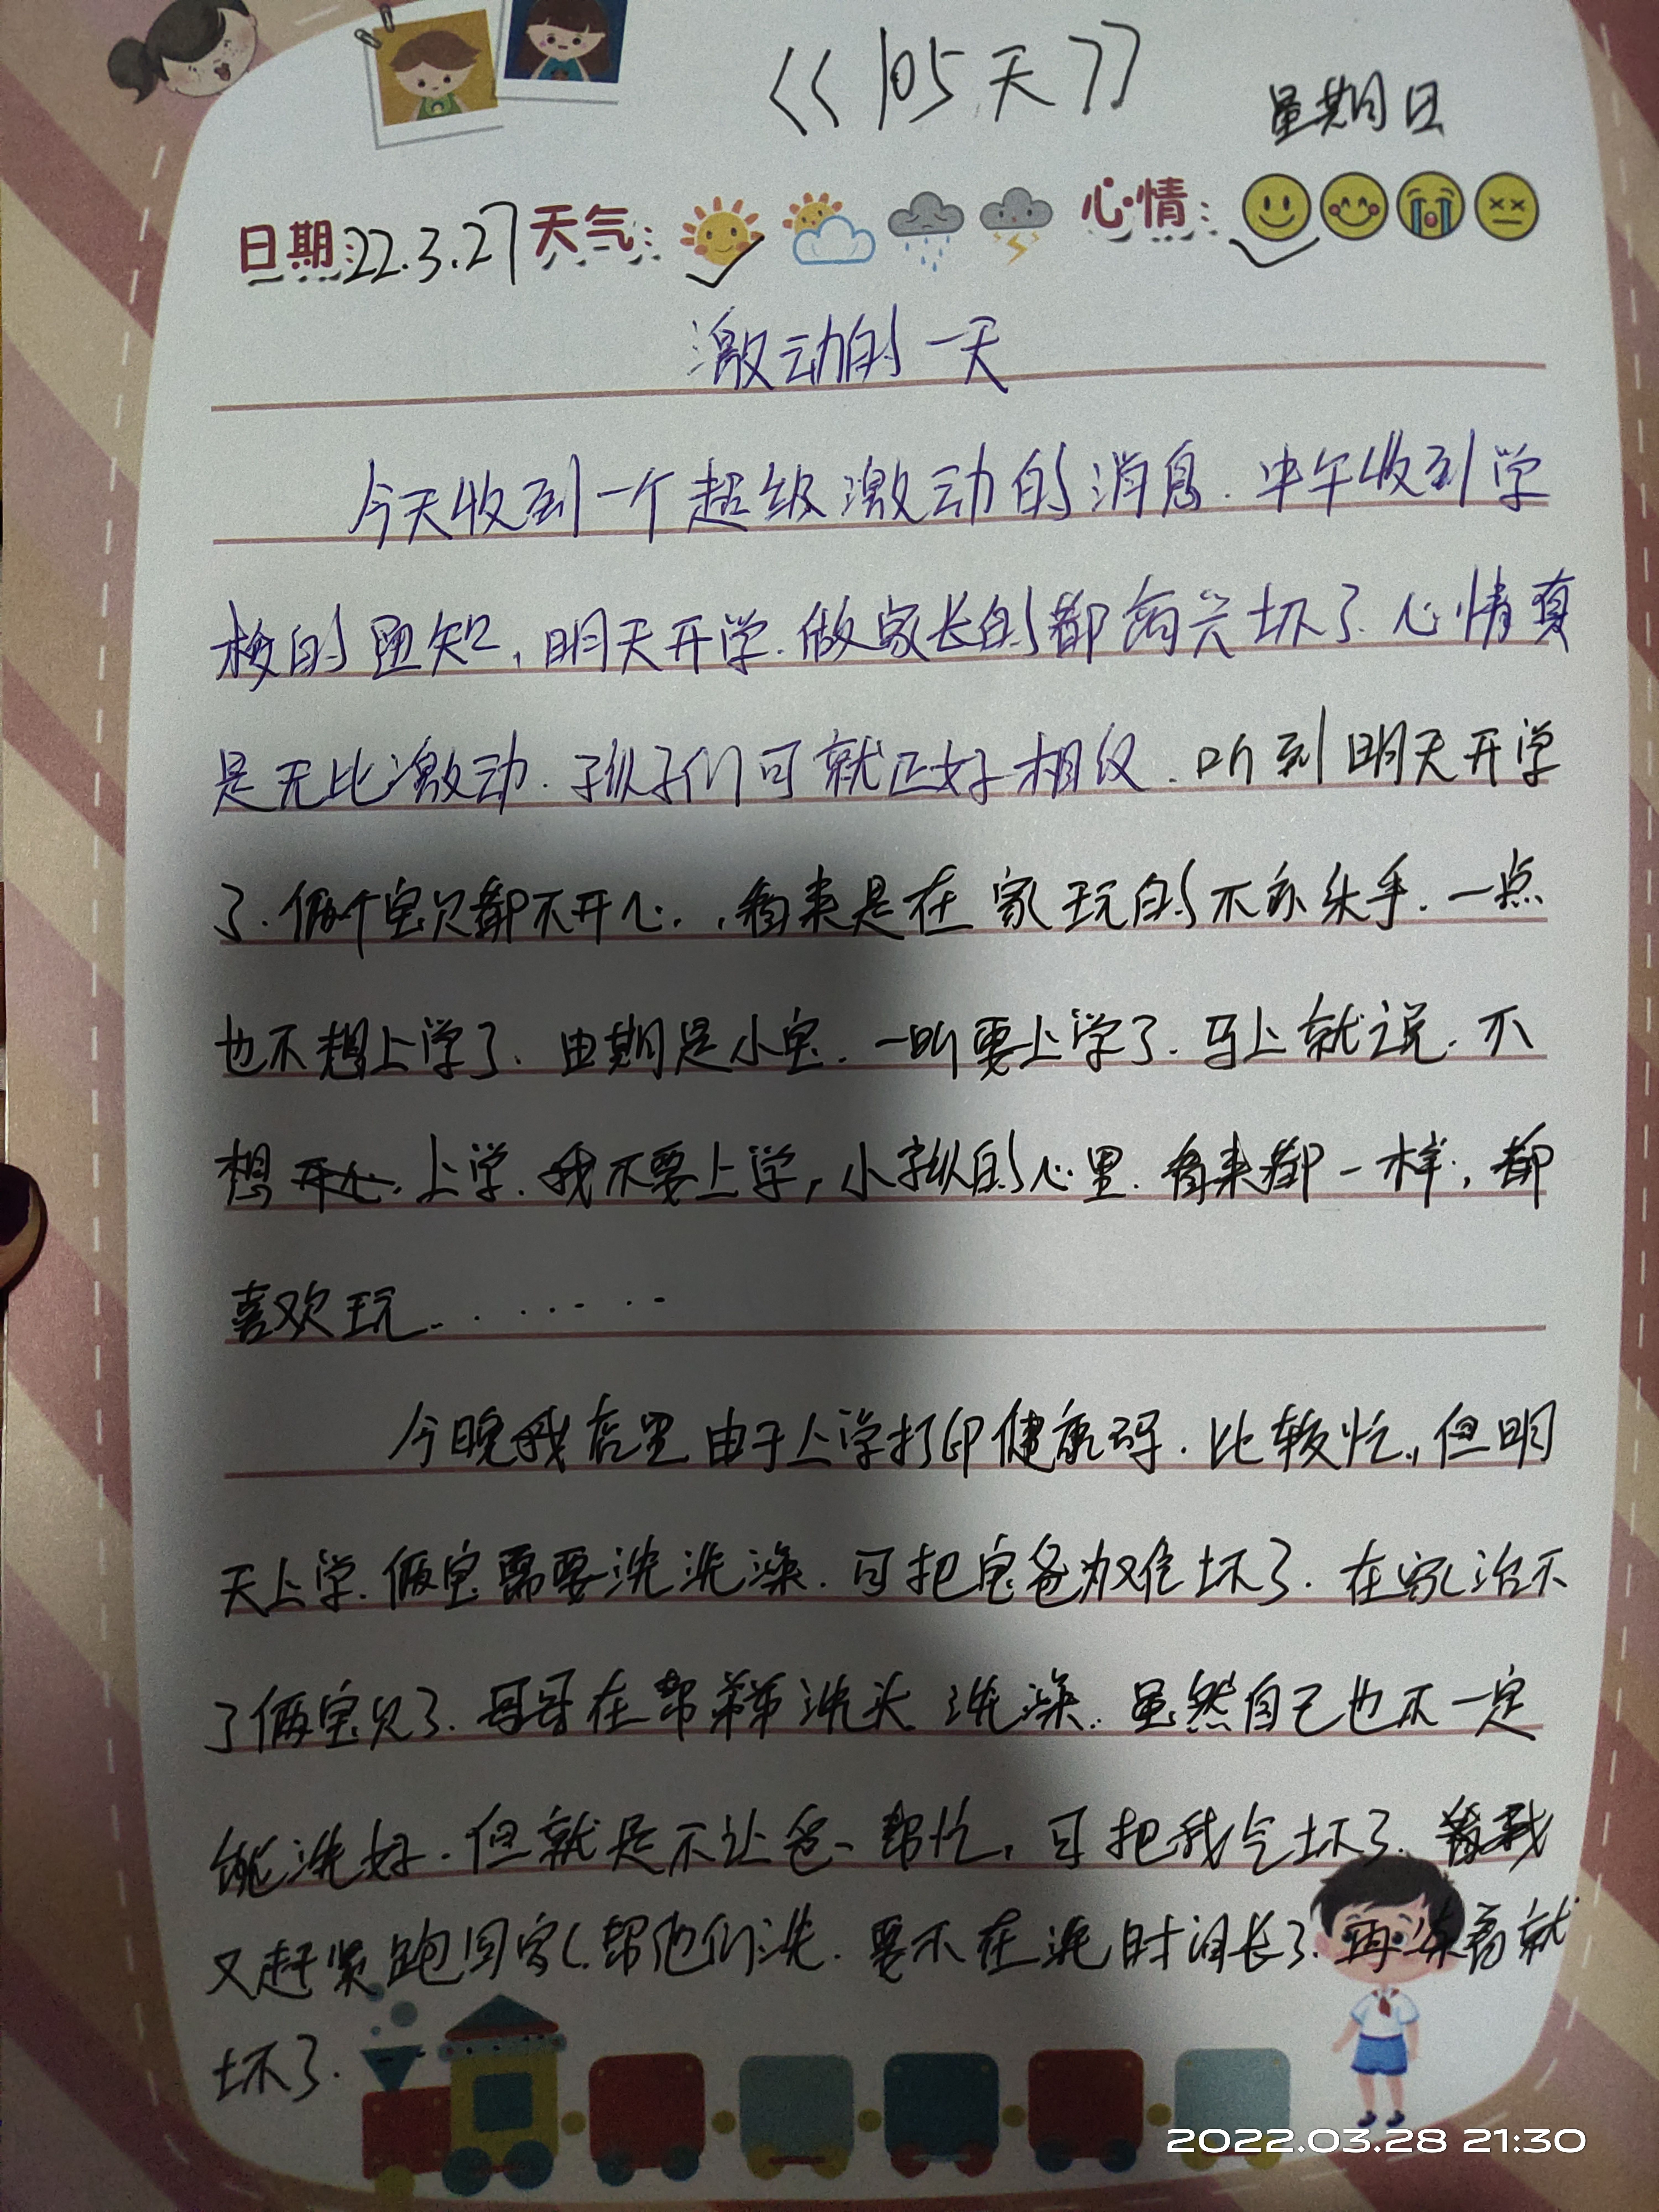 <<105天>>
星期日
日期:22.3.27 天气: 心情:
激动的一天
今天收到一个超级激动的消息.中午收到学
校的通知,明天开学.做家长的都高兴坏了.心情真
是无比激动.孩子们可就正好相反.听到明天开学
了.俩个宝贝都不开心.,看来是在家玩的不亦乐乎.一点
也不想上学了.由期是小宝.一听要上学了.马上就说.不
想 上学.我不要上学,小孩的心里.看来都一样,都
喜欢玩.........
今晚我店里由于上学打印健康码.比较忙.,但明
天上学.俩宝需要洗洗澡.可把宝爸为难坏了.在家治不
了俩宝贝了.哥哥在帮弟弟洗头洗澡.虽然自己也不一定
能洗好.但就是不让爸、帮忙,可把我气坏了.我
又赶紧跑回家.帮他们洗.要不在洗时间长了.再冻着就
坏了.
2022.03.28 21:30